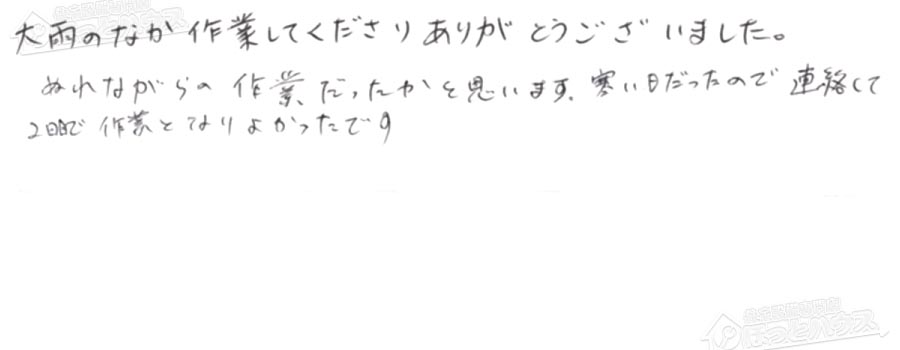 大雨のなか作業してくださりありがとうございました。
ぬれながらの作業だったかと思います、寒い日だったので連絡して
2日で作業となりよかったです
ほっとハウス